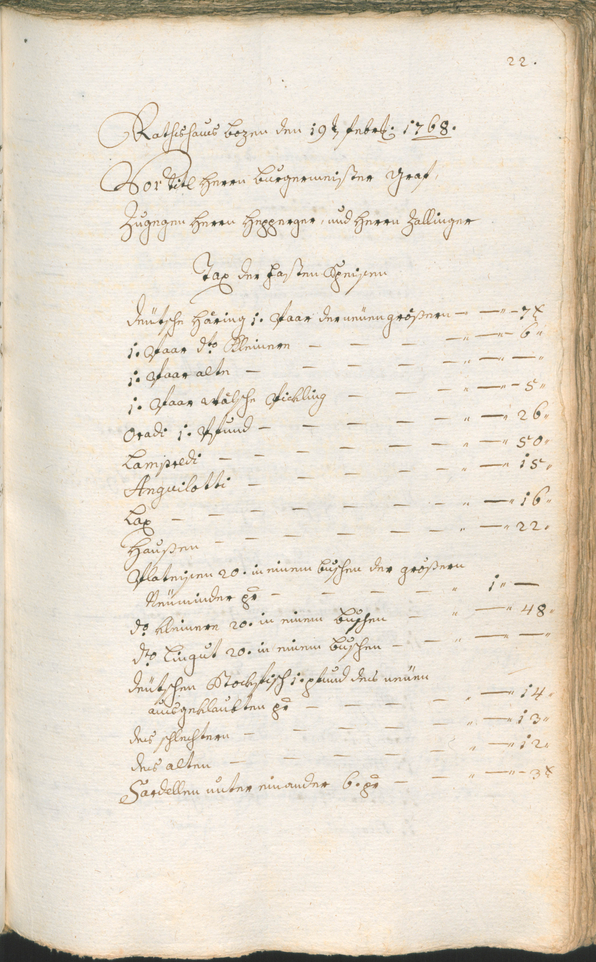 22.
Rathshaus bozen den 19t febr: 1768.
Vor titl herrn burgermeister Graf,
Zugegen herrn Hepperger, und herrn Zallinger
Tax der fasten Speisen
deütsche häring 1. Paar der neüen größern — — " — 7x
1. Paar dto kleinern — — — — " — 6 "
1. Paar alte — — — — " — —
1. Paar wälsche Pickling — — — " — 5 "
Oradi 1. Pfund — — — — " — 26 "
Lampredi — — — — — " — 50 "
Anguilotti — — — — — " — 15 "
Lax — — — — — — " — 16 "
Haußen — — — — — " — 22 "
Plateisen 20. in einem buschen der größern
Neüminder pr — — — — " 1 " —
do kleinere 20. in einem buschen — " — 48 "
dto Lingut 20. in einem buschen — — " — —
deütschen Stockfisch 1. pfund des neüen
ausgeklaubten pr — — — — " — 14 "
des schlechtern — — — — " — 13 "
des alten — — — — — " — 12 "
Sardellen unter einander 6. pr — — " — " — 3x